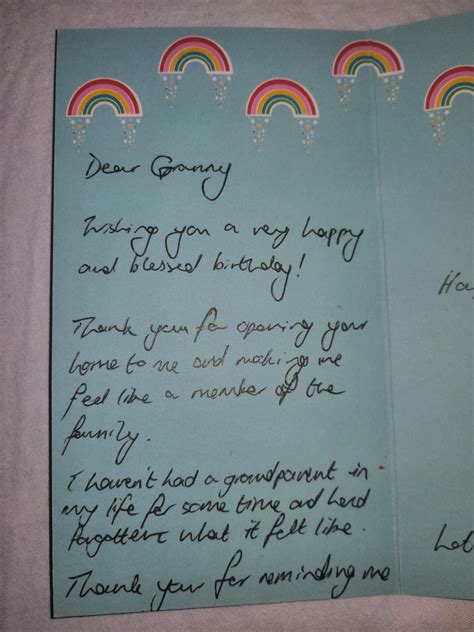 Dear Granny
Wishing you a very happy
and blessed birthday!
Thank you for opening your
home to me and making me
feel like a member of the
family.
I haven't had a grandparent in
my life for some time and had
forgotten what it felt like.
Thank you for reminding me
Ha
Lot